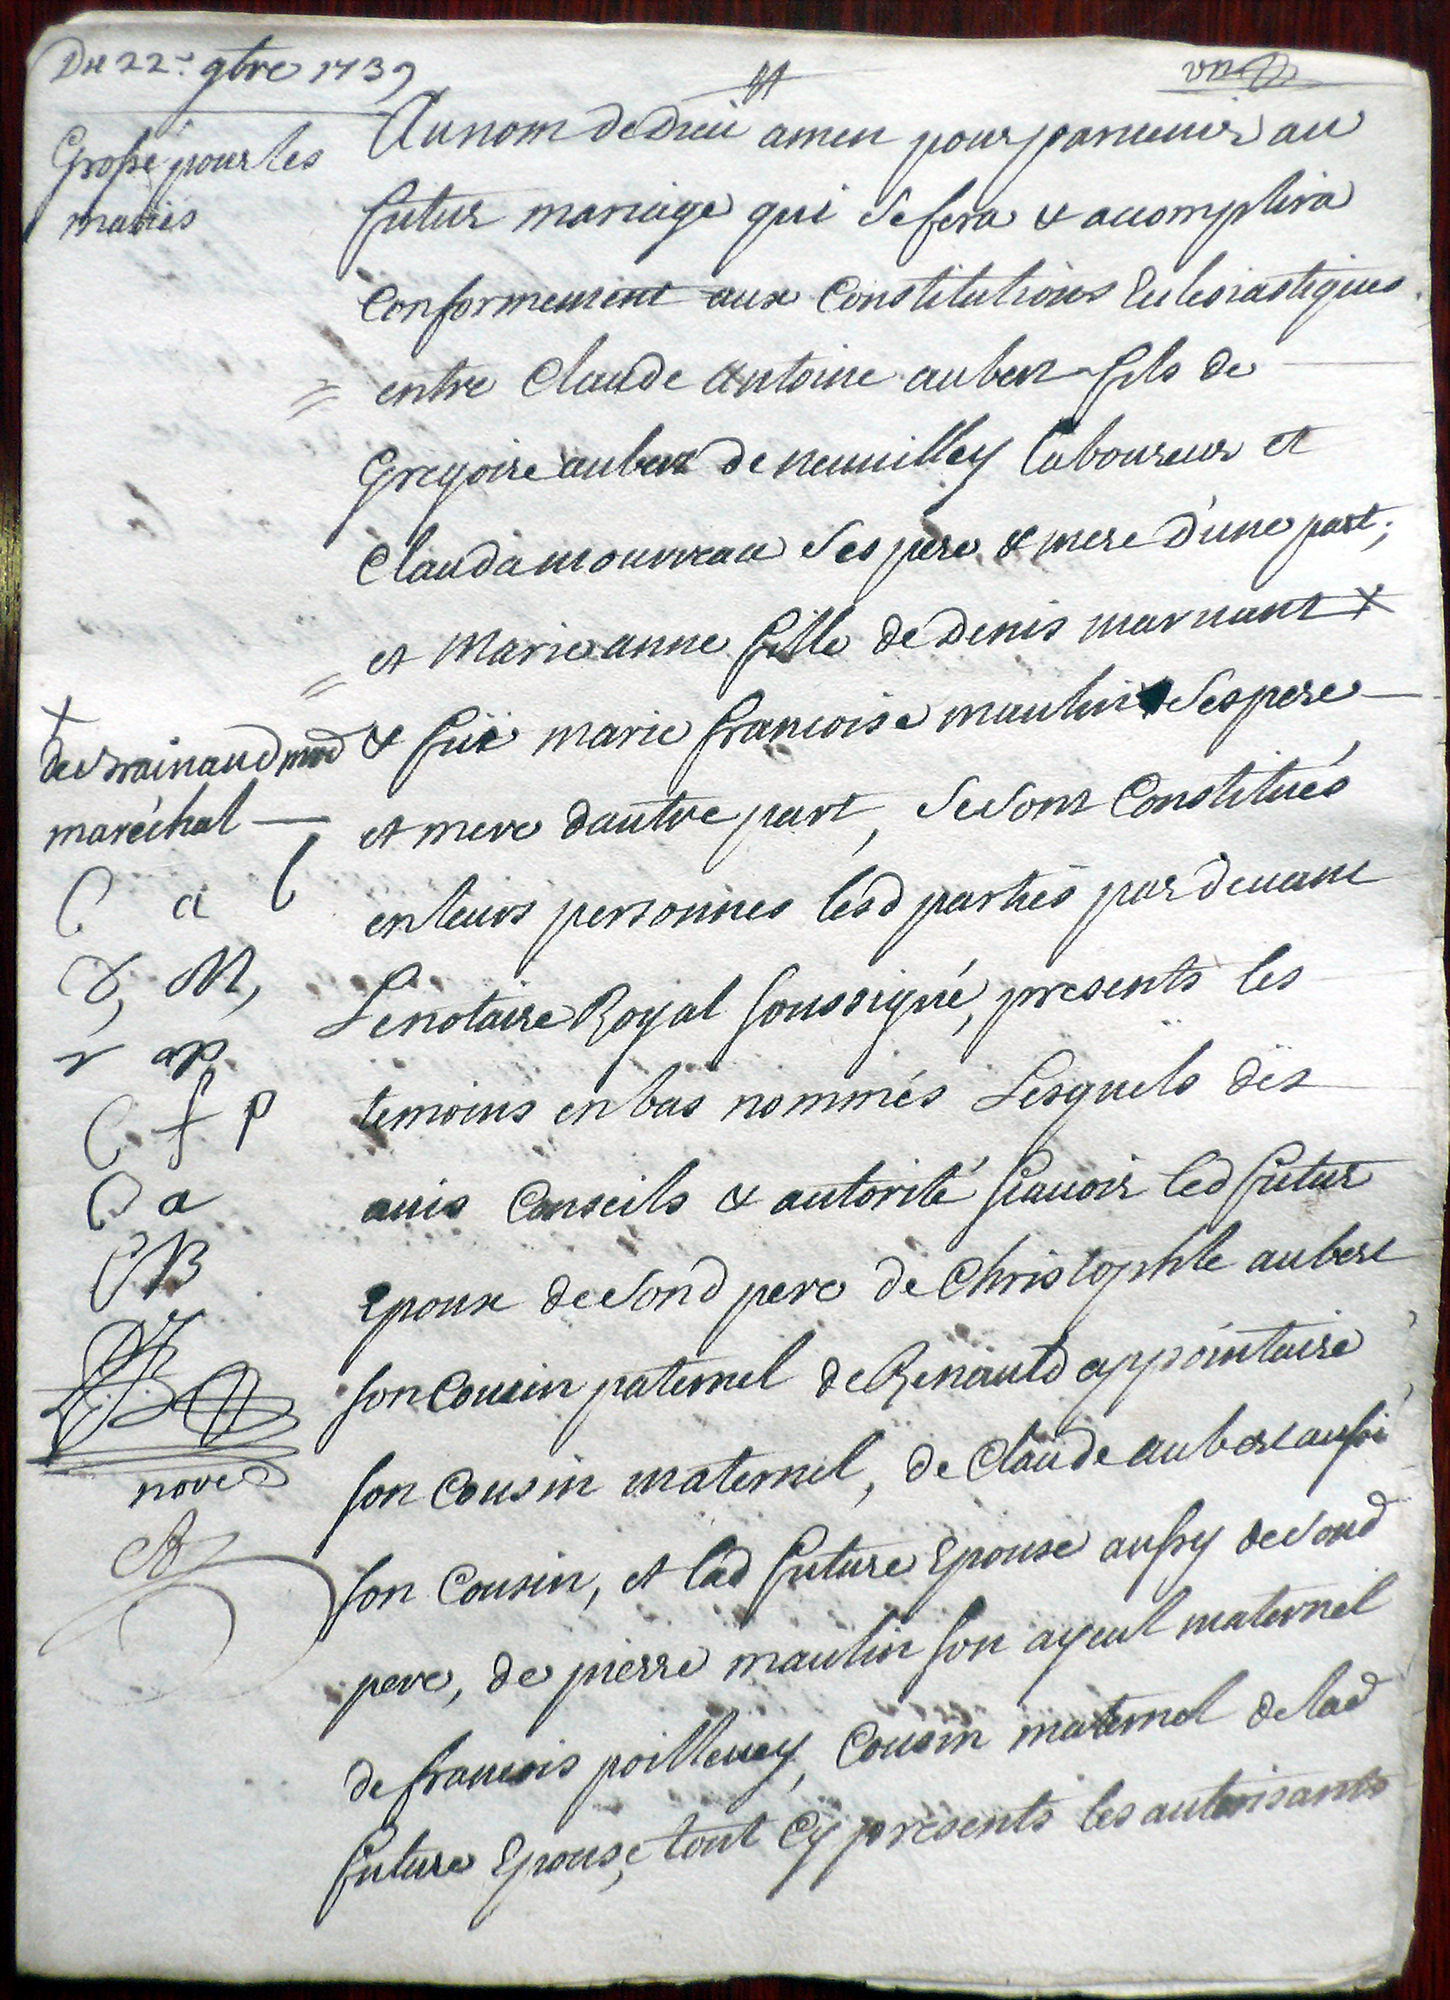 Du 22e 9bre 1739
Grossé pour les
mariés
Au nom de Dieu amen pour parvenir au
futur mariage qui se fera & accomplira
conformement aux Constitutions Eclesiastiques
entre Claude Antoine aubert fils de
Gregoire aubert de neuvilley laboureur et
Clauda mouvreau ses pere & mere d'une part,
et Marie anne fille de Denis marnant X
& füe marie francoise maulin ses pere
et mere dautre part, se sont Constitués
en leurs personnes lesd parties par devant
Le notaire Royal soussigné, presents les
temoins en bas nommés Lesquels des
avis Conseils & autorité scavoir led futur
Epoux de sond pere de Christophle aubert
son Cousin paternel de Renauld appointaire
son Cousin maternel, de Claude aubert aussi
son Cousin, et lad future Epouse aussy de sond
pere, de pierre maulin son ayeul maternel
de francois poillevey, Cousin maternel de lad
future Epouse, tout Cy presents les autorisants
X
de srainaud
maréchal
C a
D, M,
r ap
C f p
C a
CB
nore